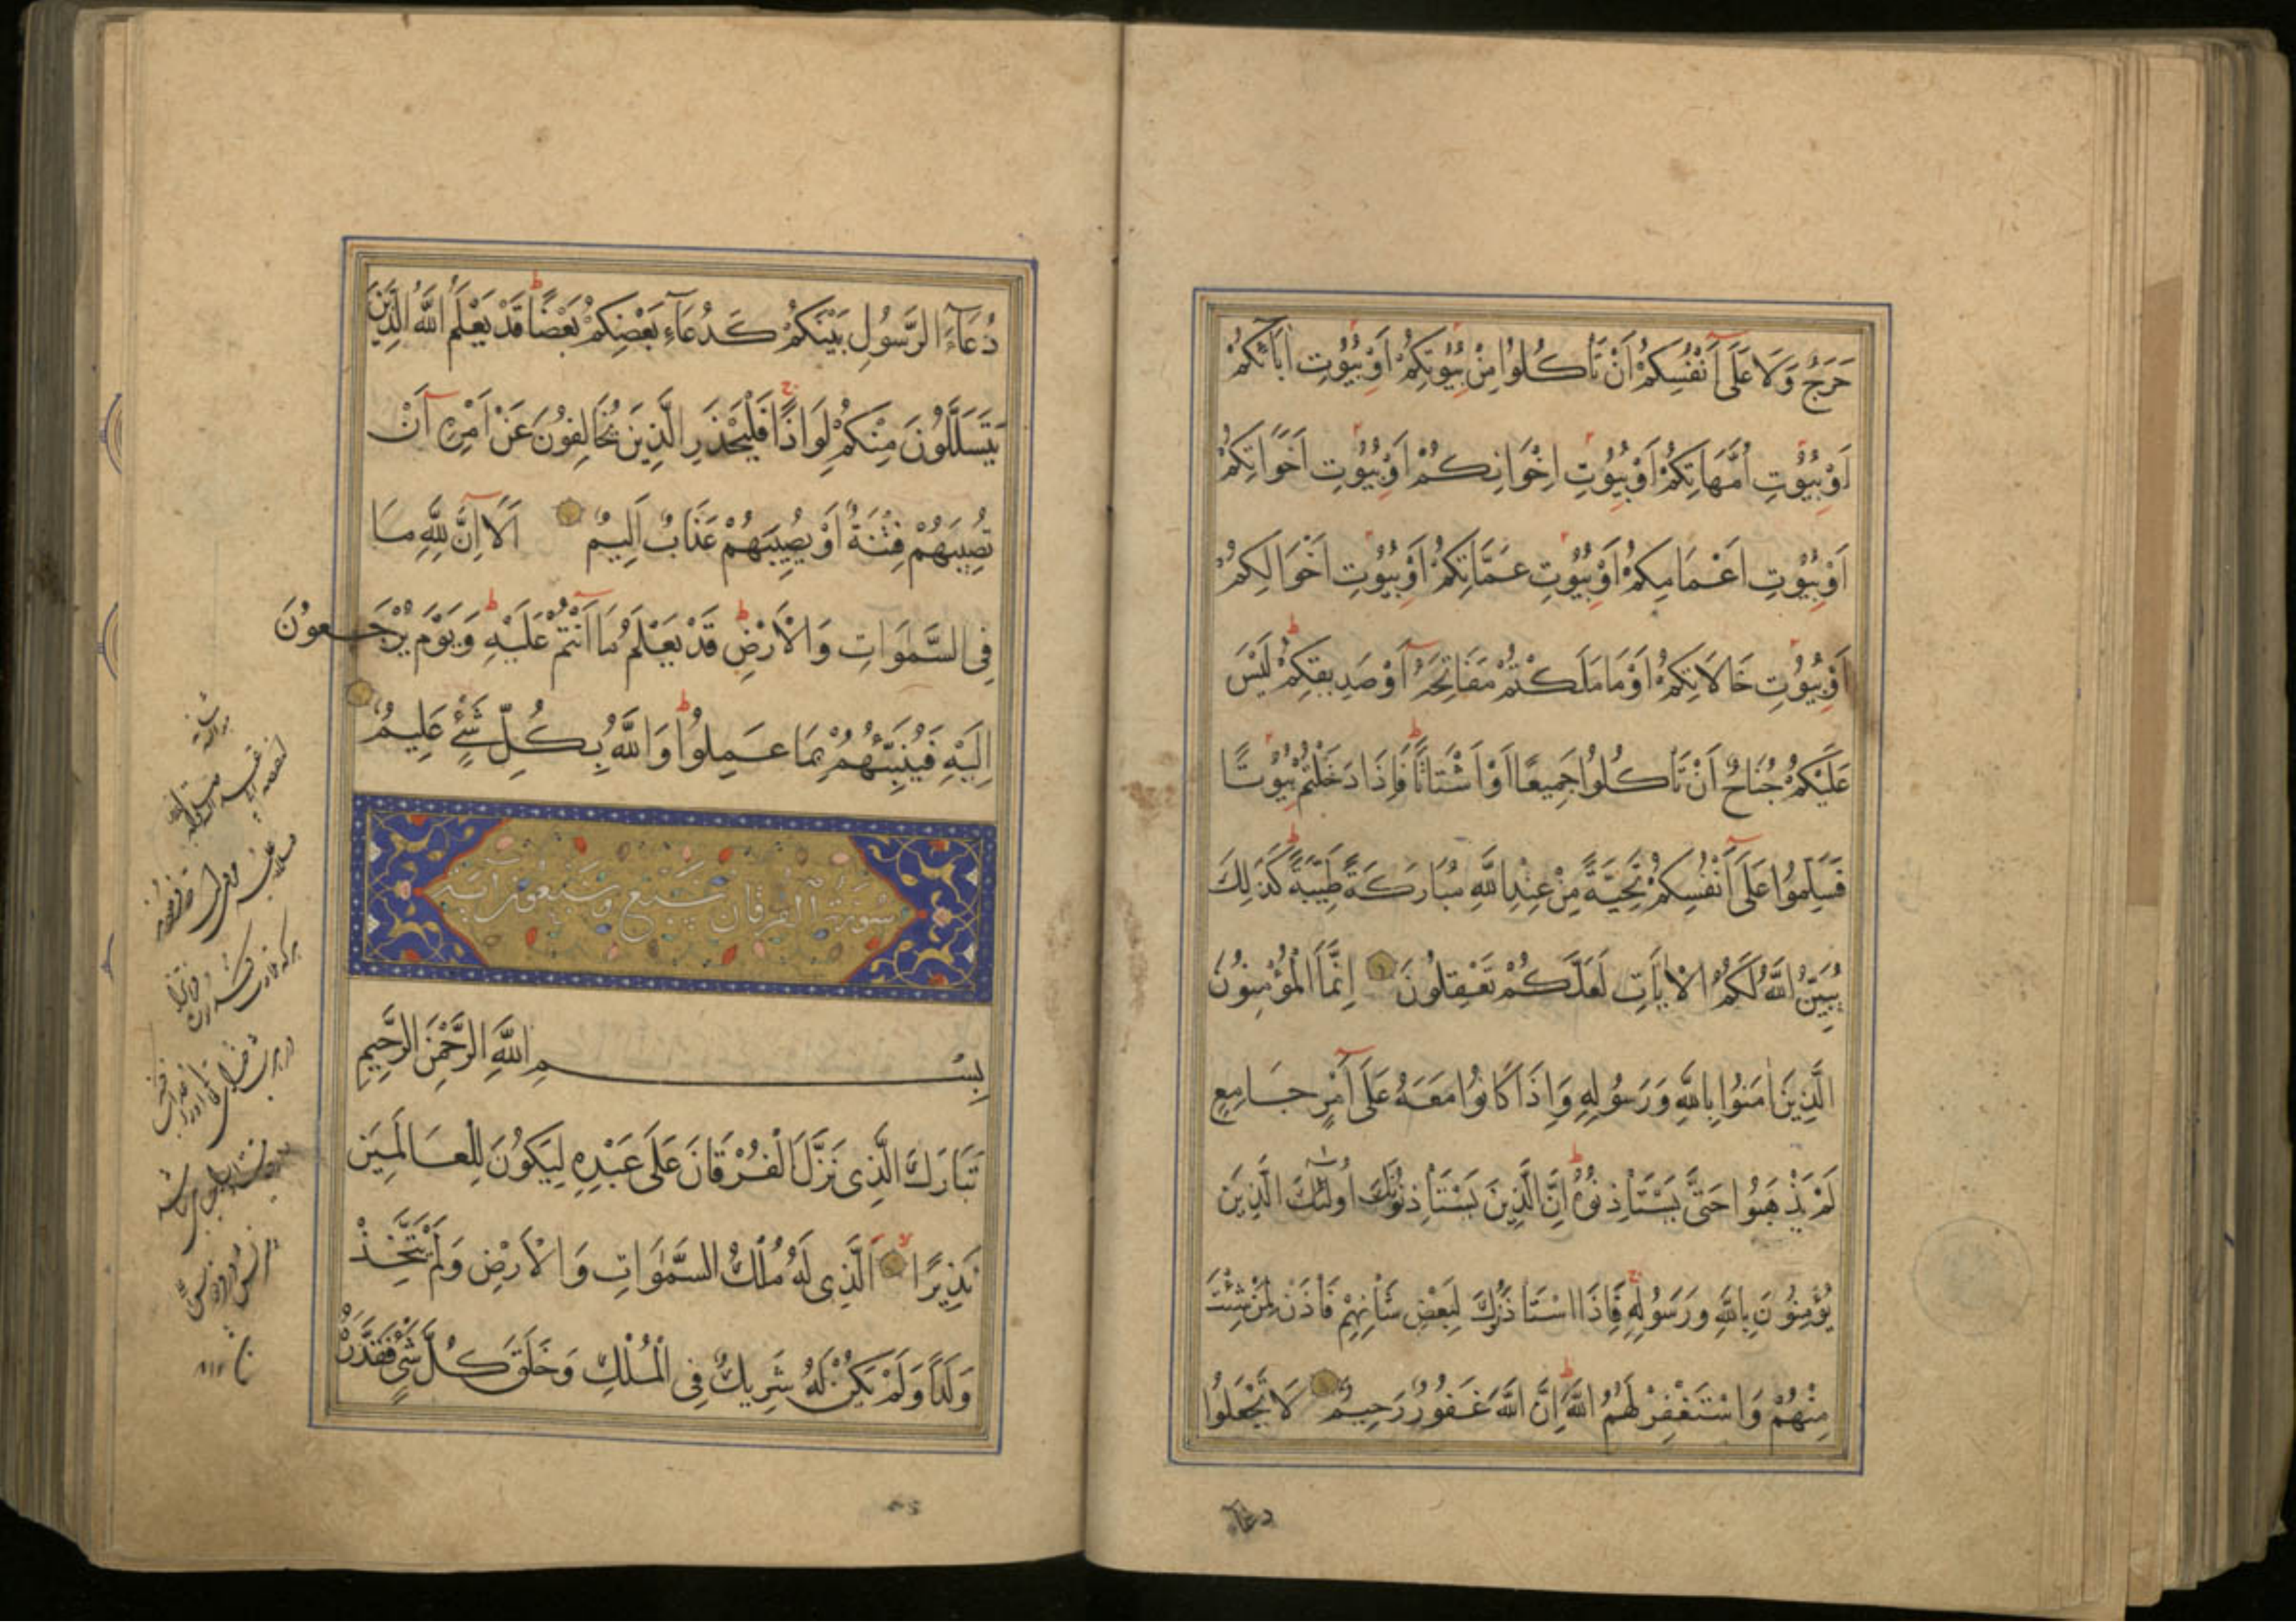 حَرَجٌ وَلَا عَلَى أَنْفُسِكُمْ أَنْ تَأْكُلُوا مِنْ بُيُوتِكُمْ أَوْ بُيُوتِ اٰبَائِكُمْ
أَوْ بُيُوتِ أُمَّهَاتِكُمْ أَوْ بُيُوتِ إِخْوَانِكُمْ أَوْ بُيُوتِ أَخَوَاتِكُمْ
أَوْ بُيُوتِ أَعْمَامِكُمْ أَوْ بُيُوتِ عَمَّاتِكُمْ أَوْ بُيُوتِ أَخْوَالِكُمْ
أَوْ بُيُوتِ خَالَاتِكُمْ أَوْ مَا مَلَكْتُمْ مَفَاتِحَهُ أَوْ صَدِيقِكُمْ لَيْسَ
عَلَيْكُمْ جُنَاحٌ أَنْ تَأْكُلُوا جَمِيعًا أَوْ أَشْتَاتًا فَإِذَا دَخَلْتُمْ بُيُوتًا
فَسَلِّمُوا عَلَى أَنْفُسِكُمْ تَحِيَّةً مِنْ عِنْدِ اللّٰهِ مُبَارَكَةً طَيِّبَةً كَذَلِكَ
يُبَيِّنُ اللّٰهُ لَكُمُ الْاٰيَاتِ لَعَلَّكُمْ تَعْقِلُونَ إِنَّمَا الْمُؤْمِنُونَ
الَّذِينَ اٰمَنُوا بِاللّٰهِ وَرَسُولِهِ وَإِذَا كَانُوا مَعَهُ عَلَى أَمْرٍ جَامِعٍ
لَمْ يَذْهَبُوا حَتَّى يَسْتَأْذِنُوهُ إِنَّ الَّذِينَ يَسْتَأْذِنُونَكَ أُولٰئِكَ الَّذِينَ
يُؤْمِنُونَ بِاللّٰهِ وَرَسُولِهِ فَإِذَا اسْتَأْذَنُوكَ لِبَعْضِ شَأْنِهِمْ فَأْذَنْ لِمَنْ شِئْتَ
مِنْهُمْ وَاسْتَغْفِرْ لَهُمُ اللّٰهَ إِنَّ اللّٰهَ غَفُورٌ رَحِيمٌ لَا تَجْعَلُوا
دعآء
دُعَآءَ الرَّسُولِ بَيْنَكُمْ كَدُعَآءِ بَعْضِكُمْ بَعْضًا قَدْ يَعْلَمُ اللّٰهُ الَّذِينَ
يَتَسَلَّلُونَ مِنْكُمْ لِوَاذًا فَلْيَحْذَرِ الَّذِينَ يُخَالِفُونَ عَنْ أَمْرِهِ أَنْ
تُصِيبَهُمْ فِتْنَةٌ أَوْ يُصِيبَهُمْ عَذَابٌ أَلِيمٌ أَلَا إِنَّ لِلّٰهِ مَا
فِي السَّمٰوَاتِ وَالْأَرْضِ قَدْ يَعْلَمُ مَا أَنْتُمْ عَلَيْهِ وَيَوْمَ يُرْجَعُونَ
إِلَيْهِ فَيُنَبِّئُهُمْ بِمَا عَمِلُوا وَاللّٰهُ بِكُلِّ شَيْءٍ عَلِيمٌ
سُورَةُ الْفُرْقَانِ سَبْعٌ وَسَبْعُونَ اٰيَةً
بِسْمِ اللّٰهِ الرَّحْمٰنِ الرَّحِيمِ
تَبَارَكَ الَّذِي نَزَّلَ الْفُرْقَانَ عَلَى عَبْدِهِ لِيَكُونَ لِلْعَالَمِينَ
نَذِيرًا الَّذِي لَهُ مُلْكُ السَّمٰوَاتِ وَالْأَرْضِ وَلَمْ يَتَّخِذْ
وَلَدًا وَلَمْ يَكُنْ لَهُ شَرِيكٌ فِي الْمُلْكِ وَخَلَقَ كُلَّ شَيْءٍ فَقَدَّرَهُ